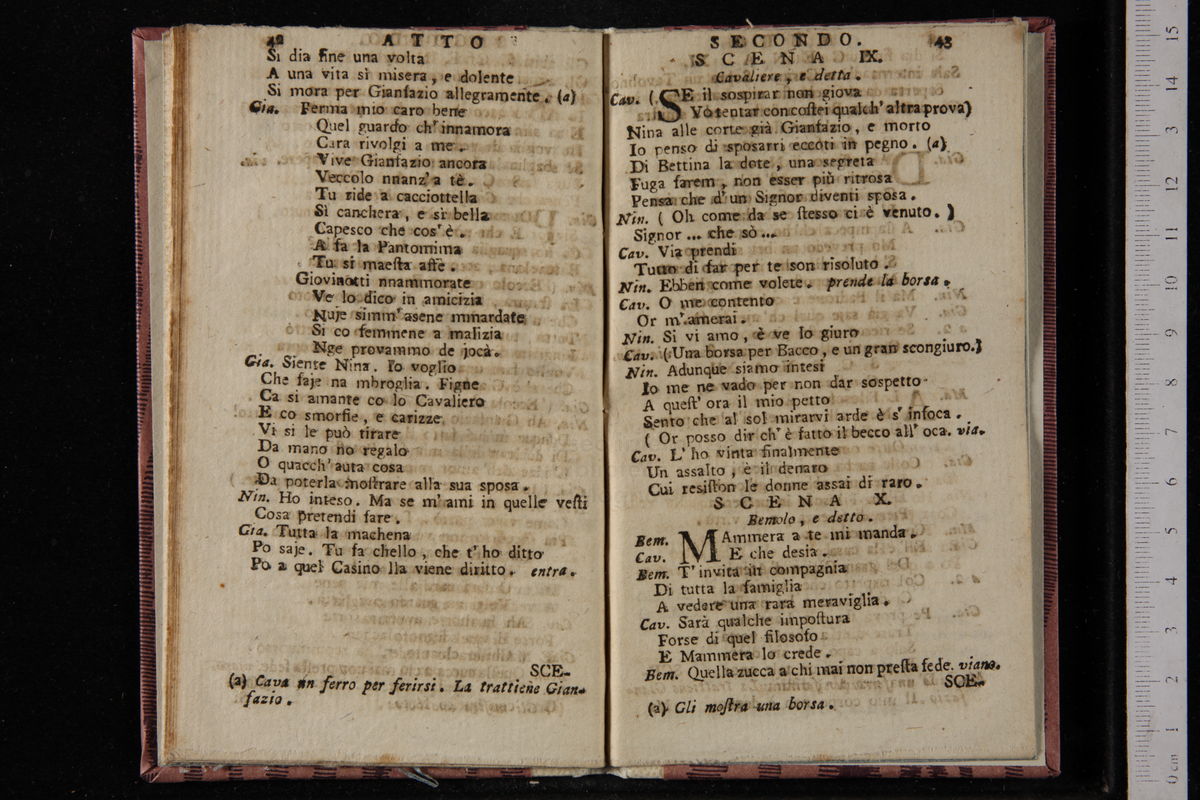 42 ATTO
Si dia fine una volta
A una vita sì misera, e dolente
Si mora per Gianfazio allegramente. (a)
Gia. Ferma mio caro bene
Quel guardo ch' innamora
Cara rivolgi a me.
Vive Gianfazio ancora
Veccolo nnanz' a tè.
Tu ride a cacciottella
Sì canchera, e si bella
Capesco che cos' è.
A fa la Pantomima
Tu si maesta affè.
Giovinotti nnammorate
Ve lo dico in amicizia
Nuje simm' asene mmardate
Si co femmene a malizia
Nge provammo de jocà.
Gia. Siente Nina. Io voglio
Che faje na mbroglia. Figne
Ca si amante co lo Cavaliero
E co smorfie, e carizze
Vi si le può tirare
Da mano no regalo
O quacch' auta cosa
Da poterla mostrare alla sua sposa.
Nin. Ho inteso. Ma se m' ami in quelle vesti
Cosa pretendi fare.
Gia. Tutta la machena
Po saje. Tu fa chello, che t' ho ditto
Po a quel Casino lla viene diritto. entra.
SCE-
(a) Cava un ferro per ferirsi. La trattiene Gian-
fazio.
SECONDO. 43
SCENA IX.
Cavaliere, e detta.
Cav. (SE il sospirar non giova
Vo tentar con costei qualch' altra prova)
Nina alle corte già Gianfazio, e morto
Io penso di sposarti eccoti in pegno. (a)
Di Bettina la dote, una segreta
Fuga farem, non esser più ritrosa
Pensa che d' un Signor diventi sposa.
Nin. (Oh come da se stesso ci è venuto.)
Signor ... che sò ...
Cav. Via prendi
Tutto di far per te son risoluto.
Nin. Ebben come volete. prende la borsa.
Cav. O me contento
Or m' amerai.
Nin. Sì vi amo, è ve lo giuro
Cav. (Una borsa per Bacco, e un gran scongiuro.)
Nin. Adunque siamo intesi
Io me ne vado per non dar sospetto
A quest' ora il mio petto
Sento che al sol mirarvi arde è s' infoca.
(Or posso dir ch' è fatto il becco all' oca. via.
Cav. L' ho vinta finalmente
Un assalto, è il denaro
Cui resiston le donne assai di raro.
SCENA X.
Bemolo, e detto.
Bem. MAmmera a te mi manda.
Cav. E che desia.
Bem. T' invita in compagnia
Di tutta la famiglia
A vedere una rara meraviglia.
Cav. Sarà qualche impostura
Forse di quel filosofo
E Mammera lo crede.
Bem. Quella zucca a chi mai non presta fede. viano.
SCE-
(a) Gli mostra una borsa.